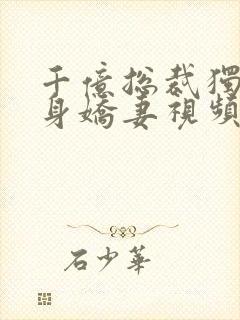 千億總裁獨
身嬌妻視頻
石少華